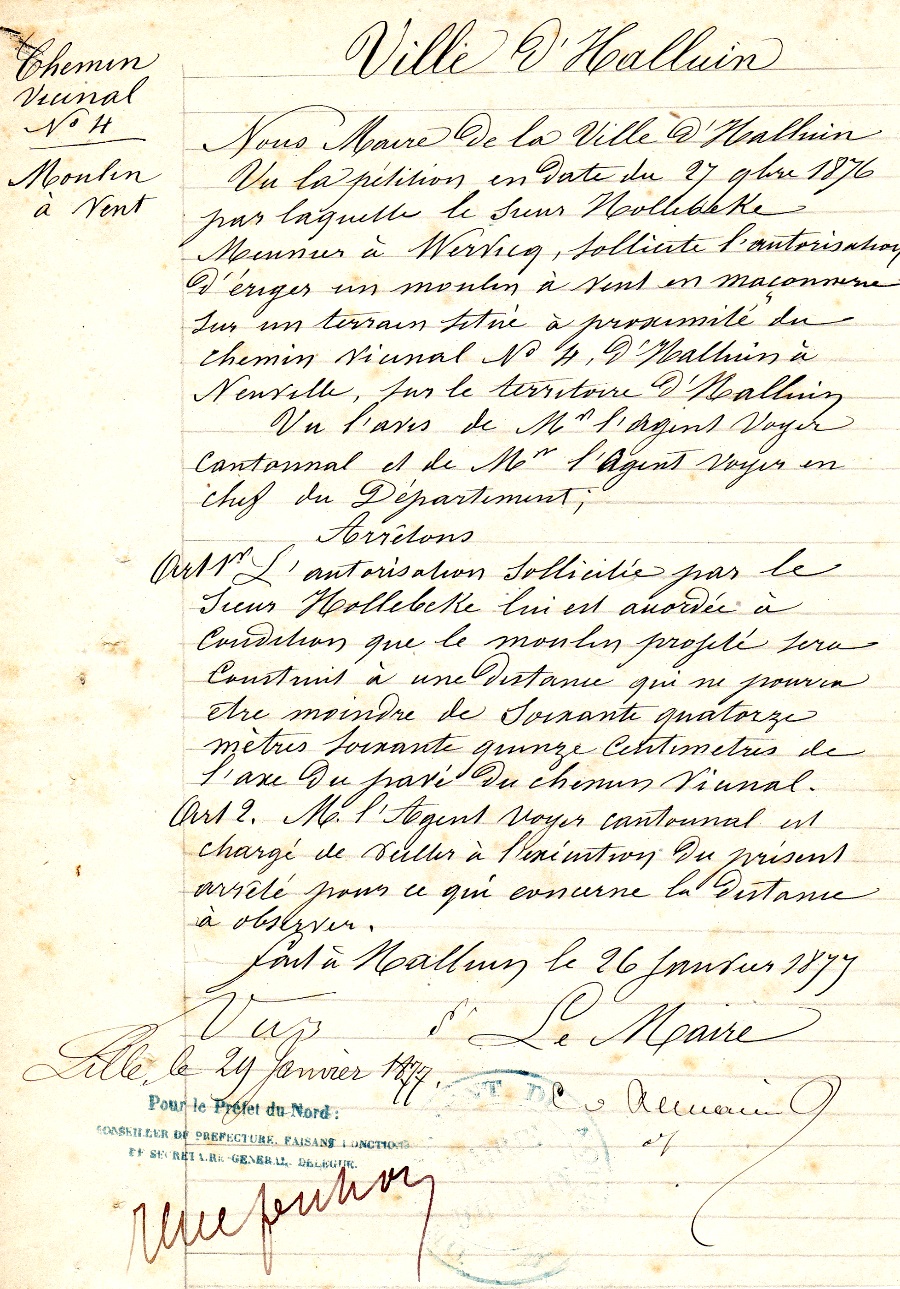 Chemin
Vicinal
N° 4
Moulin
à Vent
Ville d'Halluin
Nous Maire de la Ville d'Halluin
Vu la pétition en date du 27 9bre 1876
par laquelle le sieur Hollebeke
Meunier à Wervicq, sollicite l'autorisation
d'ériger un moulin à vent en maçonnerie
sur un terrain situé à proximité du
chemin vicinal N° 4, d'Halluin à
Neuville, sur le territoire d'Halluin
Vu l'avis de Mr l'Agent Voyer
cantonnal et de Mr l'Agent voyer en
chef du Département;
Arrêtons
Art 1er L'autorisation sollicitée par le
Sieur Hollebeke lui est accordée à
Condition que le moulin projeté sera
Construit à une distance qui ne pourra
etre moindre de soixante quatorze
mètres soixante quinze centimetres de
l'axe du pavé du chemin vicinal.
Art 2. M. l'Agent voyer cantonnal est
chargé de veiller à l'exécution du présent
arrêté pour ce qui concerne la distance
à observer.
fait à Halluin le 26 Janvier 1877
Vu
Le Maire
Lille, le 29 Janvier 1877.
Pour le Préfet du Nord :
CONSEILLER DE PREFECTURE, FAISANT FONCTIONS
DE SECRETAIRE-GENERAL, DELEGUE.